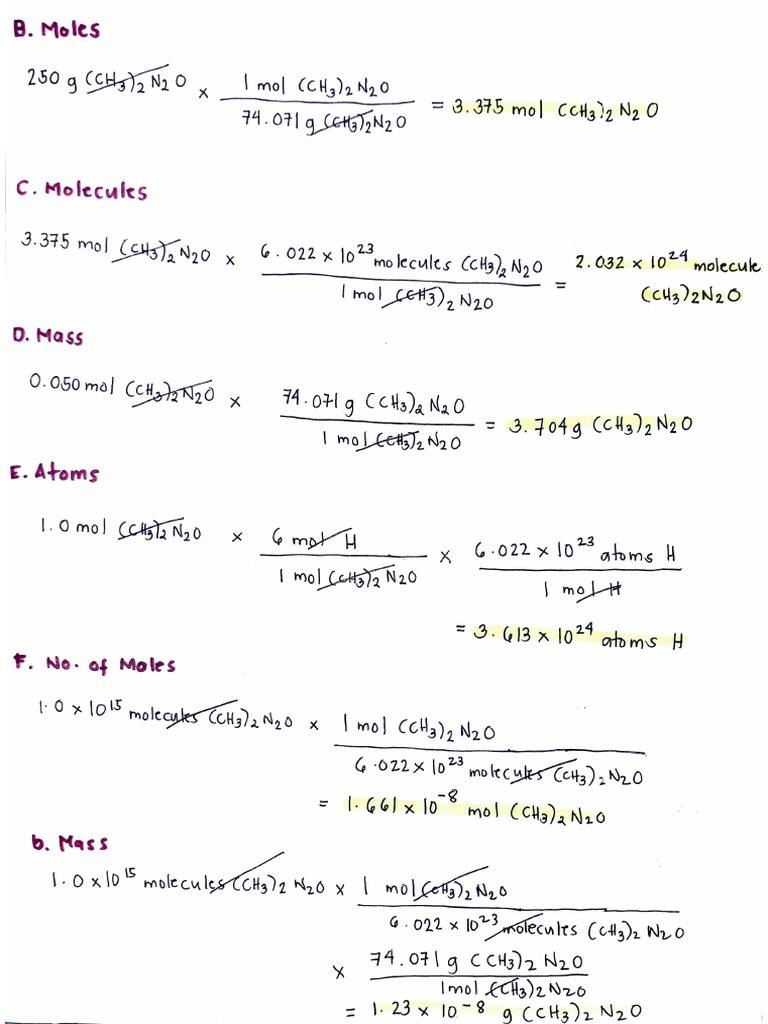 B. Moles
250 g (CH3)2 N2O × 1 mol (CH3)2 N2O = 3.375 mol (CH3)2 N2O
74.071 g (CH3)2N2O
C. Molecules
3.375 mol (CH3)2 N2O × 6.022 × 10^23 molecules (CH3)2 N2O = 2.032 × 10^24 molecule
1 mol (CH3)2 N2O (CH3)2N2O
D. Mass
0.050 mol (CH3)2N2O × 74.071 g (CH3)2 N2O = 3.704 g (CH3)2 N2O
1 mol (CH3)2 N2O
E. Atoms
1.0 mol (CH3)2 N2O × 6 mol H × 6.022 × 10^23 atoms H
1 mol (CH3)2 N2O 1 mol H
= 3.613 × 10^24 atoms H
F. No. of Moles
1.0 × 10^15 molecules (CH3)2 N2O × 1 mol (CH3)2 N2O
6.022 × 10^23 molecules (CH3)2 N2O
= 1.661 × 10^-8 mol (CH3)2 N2O
b. Mass
1.0 × 10^15 molecules (CH3)2 N2O × 1 mol (CH3)2 N2O
6.022 × 10^23 molecules (CH3)2 N2O
× 74.071 g (CH3)2 N2O
1 mol (CH3)2 N2O
= 1.23 × 10^-8 g (CH3)2 N2O